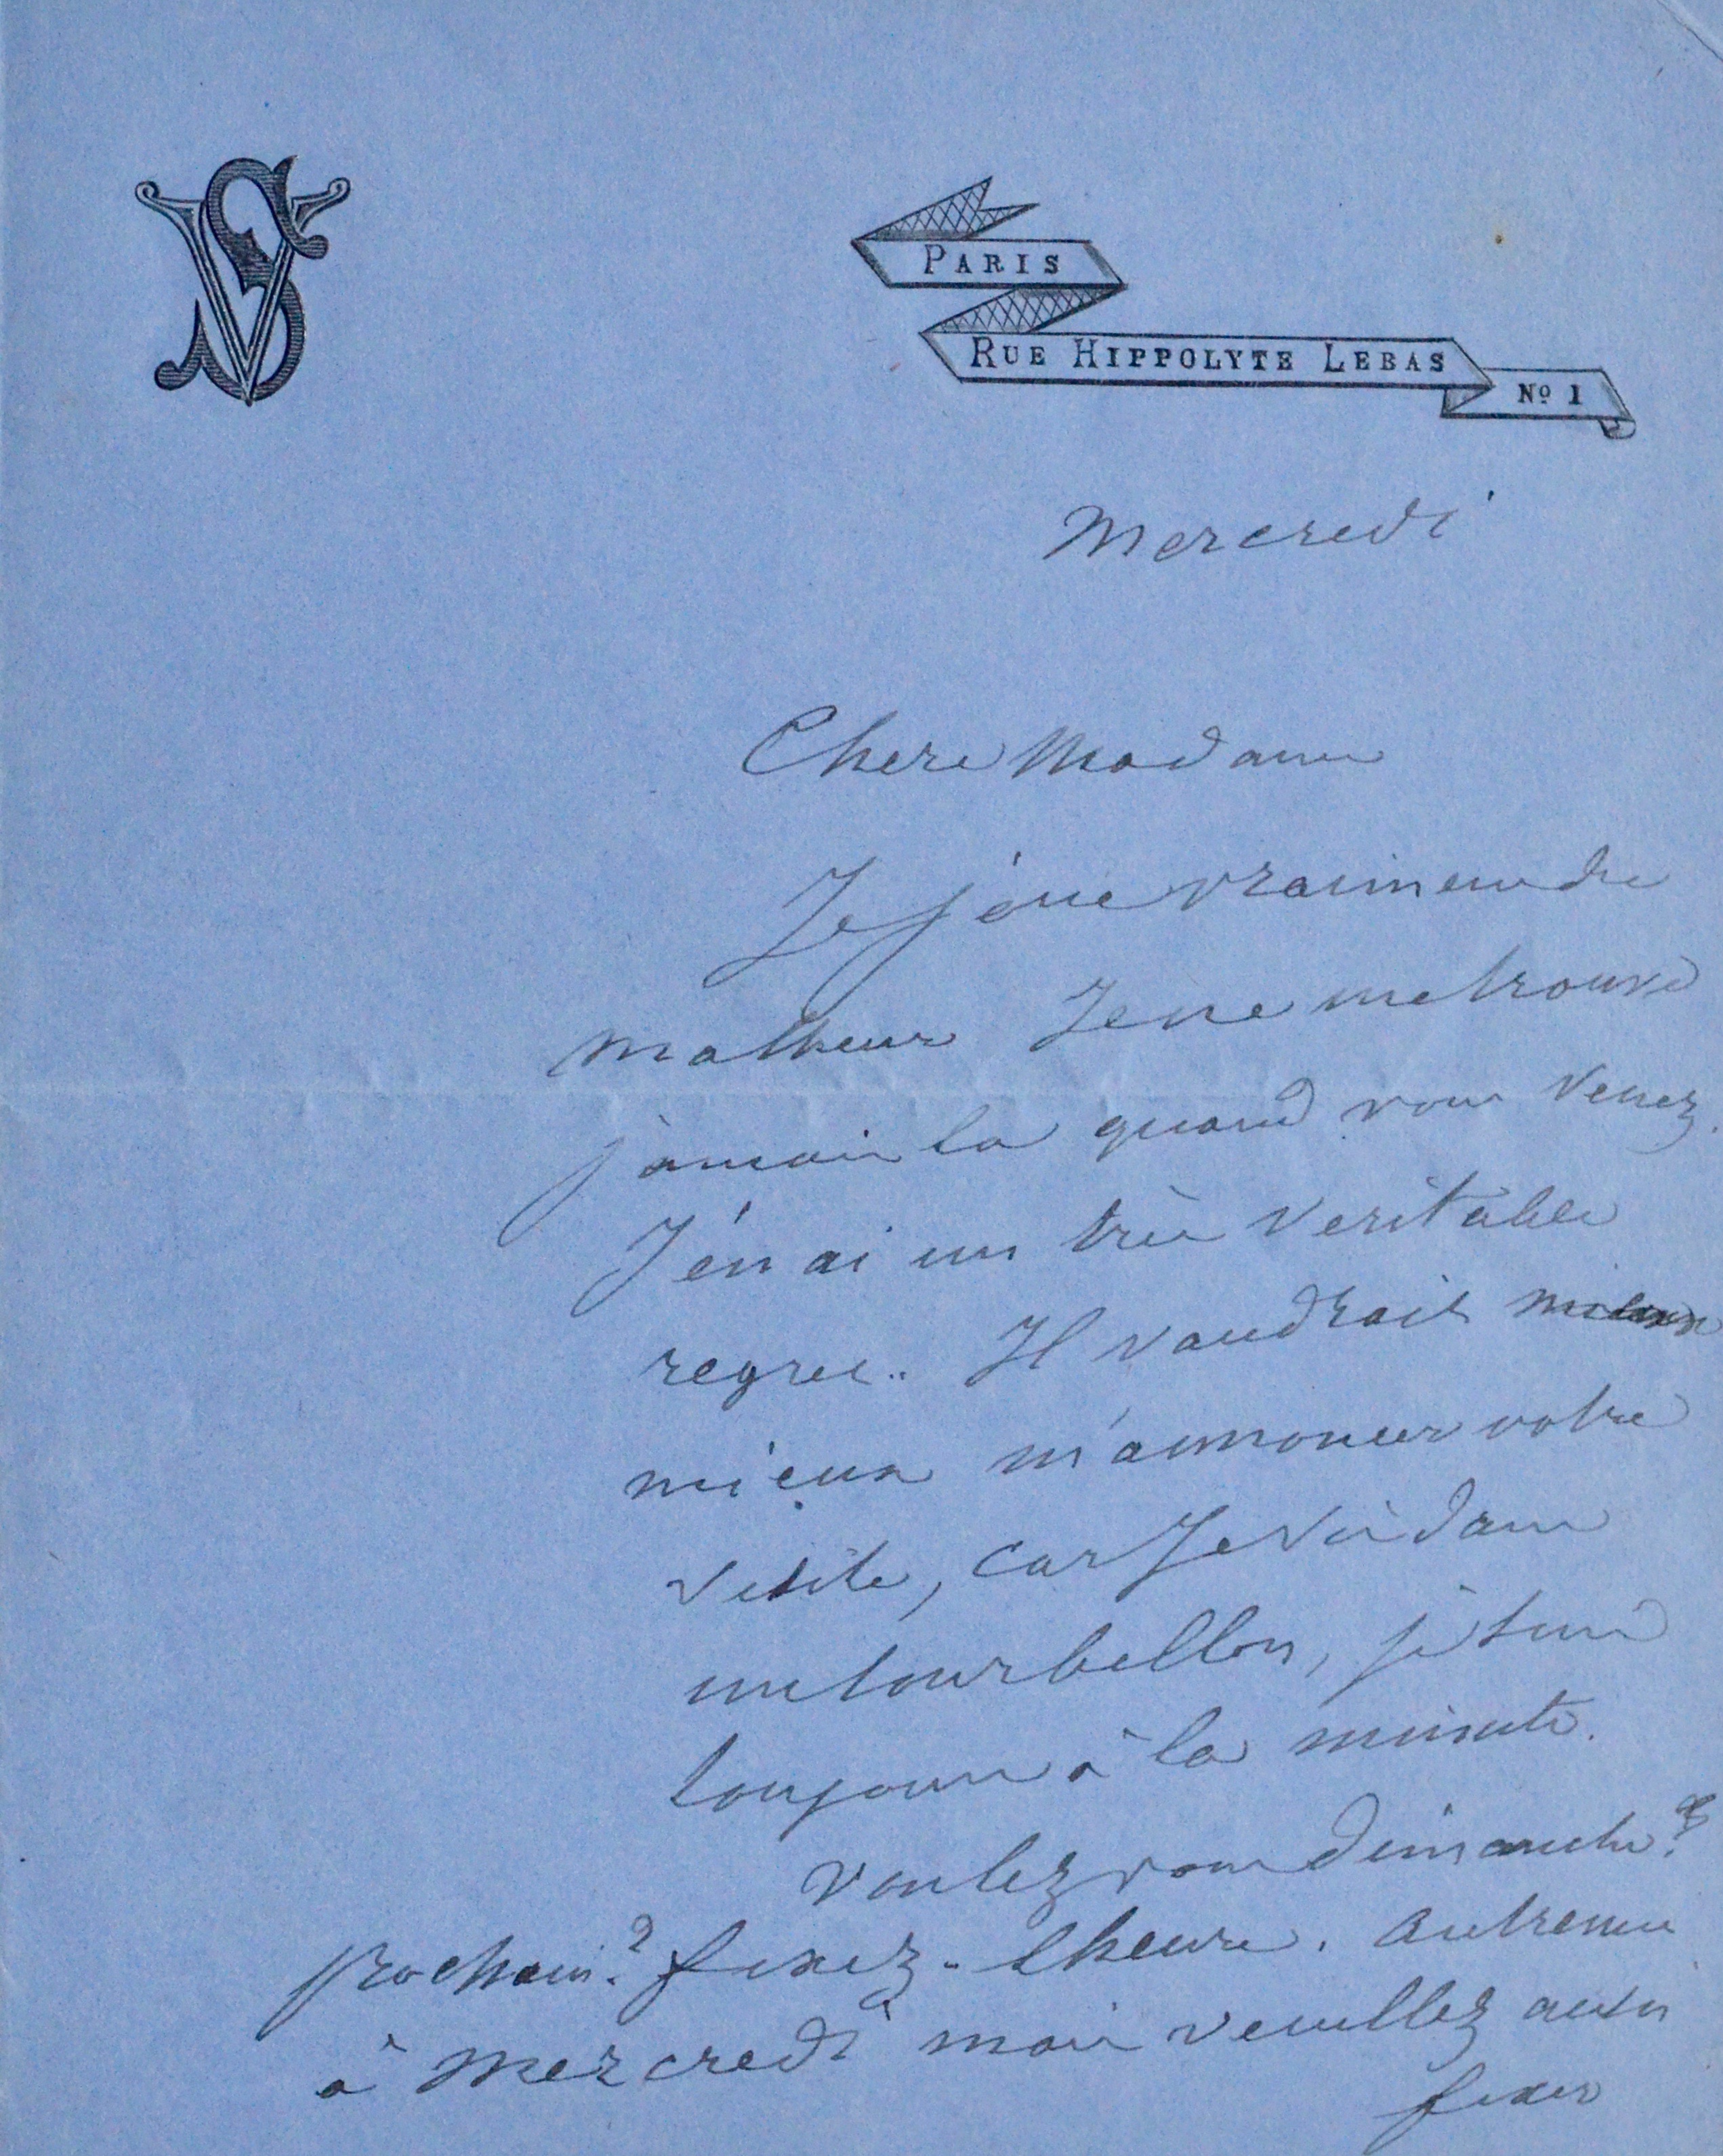 VS
PARIS
RUE HIPPOLYTE LEBAS
Nº 1
Mercredi
Chere Madame
Je joue vraiment de
malheur Je ne me trouve
jamais la quand vous venez.
J'en ai un très veritable
regret.. Il vaudrait
mieux m'annoncer votre
visite, car Je vis dans
un tourbillon,
toujours à la minute.
voulez vous dimanche?
prochain? fixez.. l'heure. autrement
à Mercredi mais veuillez aussi
fixer